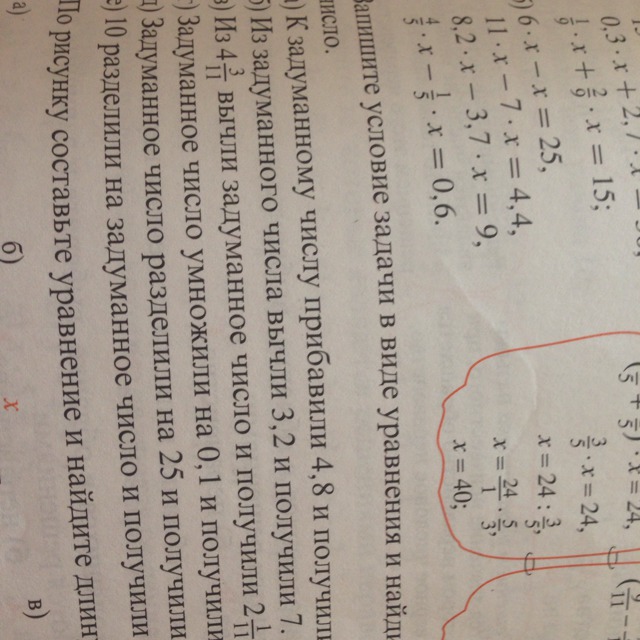 0,3 · x + 2,7 · x =
1/9 · x + 2/9 · x = 15;
6 · x − x = 25,
11 · x − 7 · x = 4,4,
8,2 · x − 3,7 · x = 9,
4/5 · x − 1/5 · x = 0,6.
· x = 24,
3/5 · x = 24,
x = 24 : 3/5,
x = 24/1 · 5/3,
x = 40;
условие задачи в виде уравнения и
число.
К задуманному числу прибавили 4,8 и
Из задуманного числа вычли 3,2 и получили 7.
Из 4 3/11 вычли задуманное число и получили 2 1/11
Задуманное число умножили на 0,1 и получили
Задуманное число разделили на 25 и получили
10 разделили на задуманное число и получили
По рисунку составьте уравнение и найдите
а)
б)
x
в)